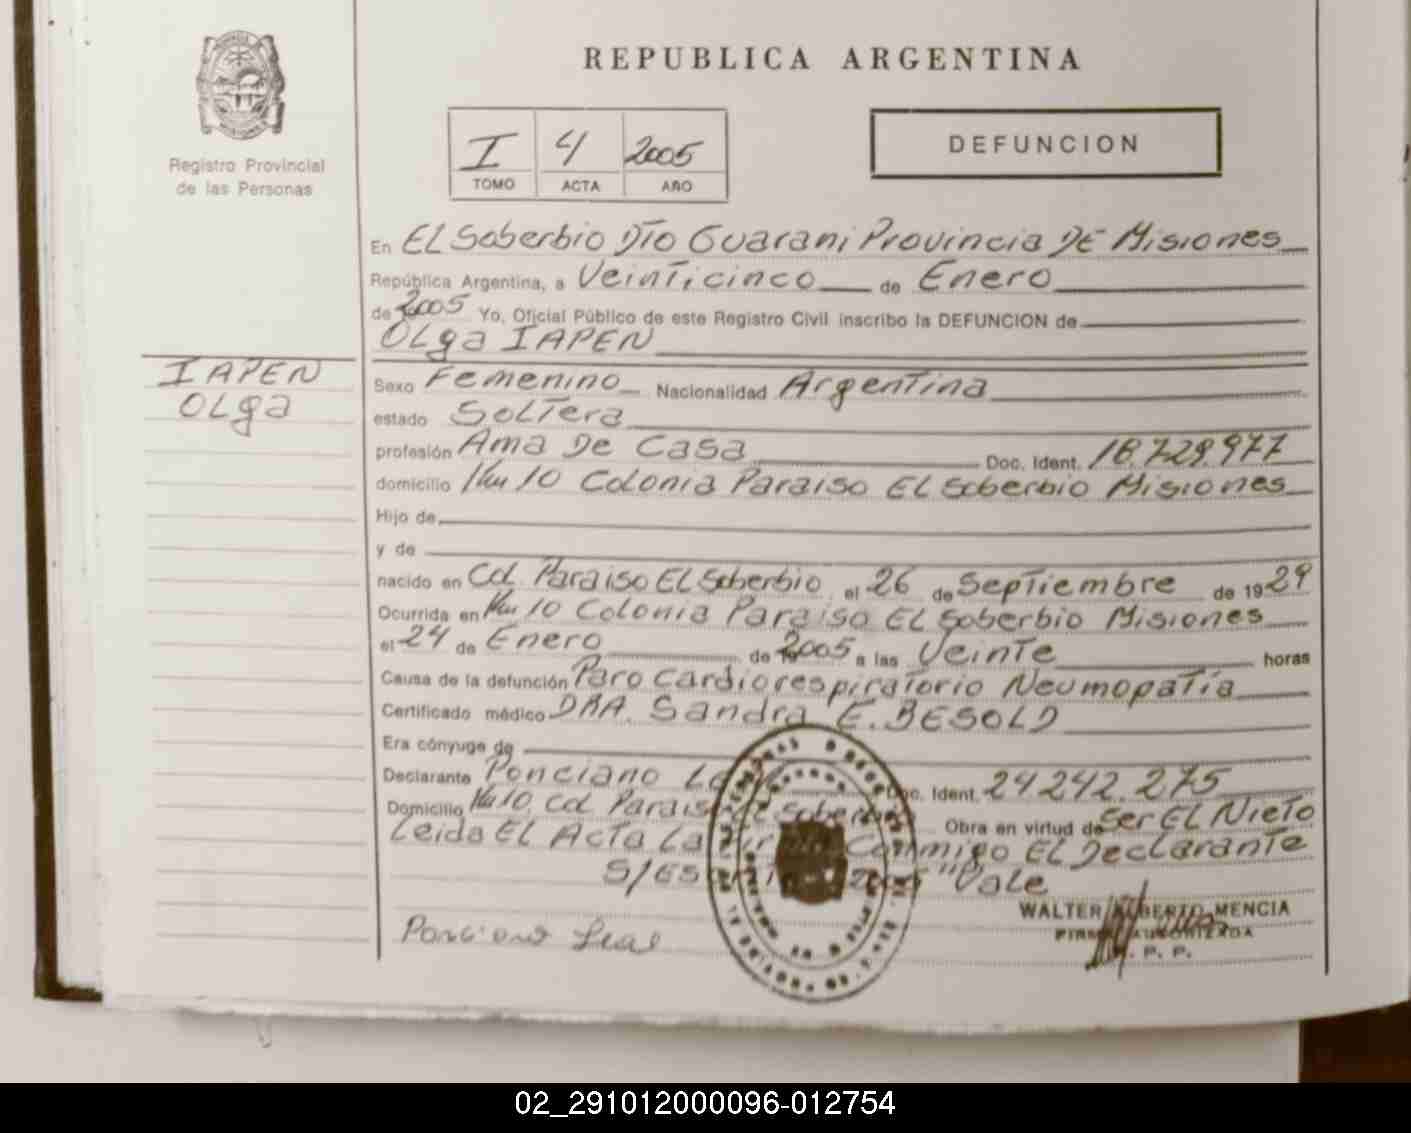 REPUBLICA ARGENTINA
Registro Provincial
de las Personas
I 4 2005
TOMO ACTA AÑO
DEFUNCION
En EL Soberbio DTO Guarani Provincia DE Misiones
República Argentina, a Veinticinco de Enero
de 2005 Yo, Oficial Público de este Registro Civil inscribo la DEFUNCION de
OLga IAPEN
IAPEN
OLga
Sexo Femenino Nacionalidad Argentina
estado Soltera
profesión Ama De Casa Doc. Ident. 18.729.977
domicilio Km 10 Colonia Paraiso EL Soberbio Misiones
Hijo de
y de
nacido en Col. Paraiso EL Soberbio el 26 de Septiembre de 1929
Ocurrida en Km 10 Colonia Paraiso EL Soberbio Misiones
el 24 de Enero de 2005 a las Veinte horas
Causa de la defunción Paro Cardiorespiratorio Neumopatia
Certificado médico DRA. Sandra E. BESOLD
Era cónyuge de
Declarante Ponciano Doc. Ident. 24.242.275
Domicilio Km 10. Col Paraiso Soberbio Obra en virtud de Ser EL Nieto
Leida EL Acta La Conmigo EL Declarante
"Vale
Ponciano Leal
WALTER ALBERTO MENCIA
FIRMA AUTORIZADA
R. P. P.
02_291012000096-012754